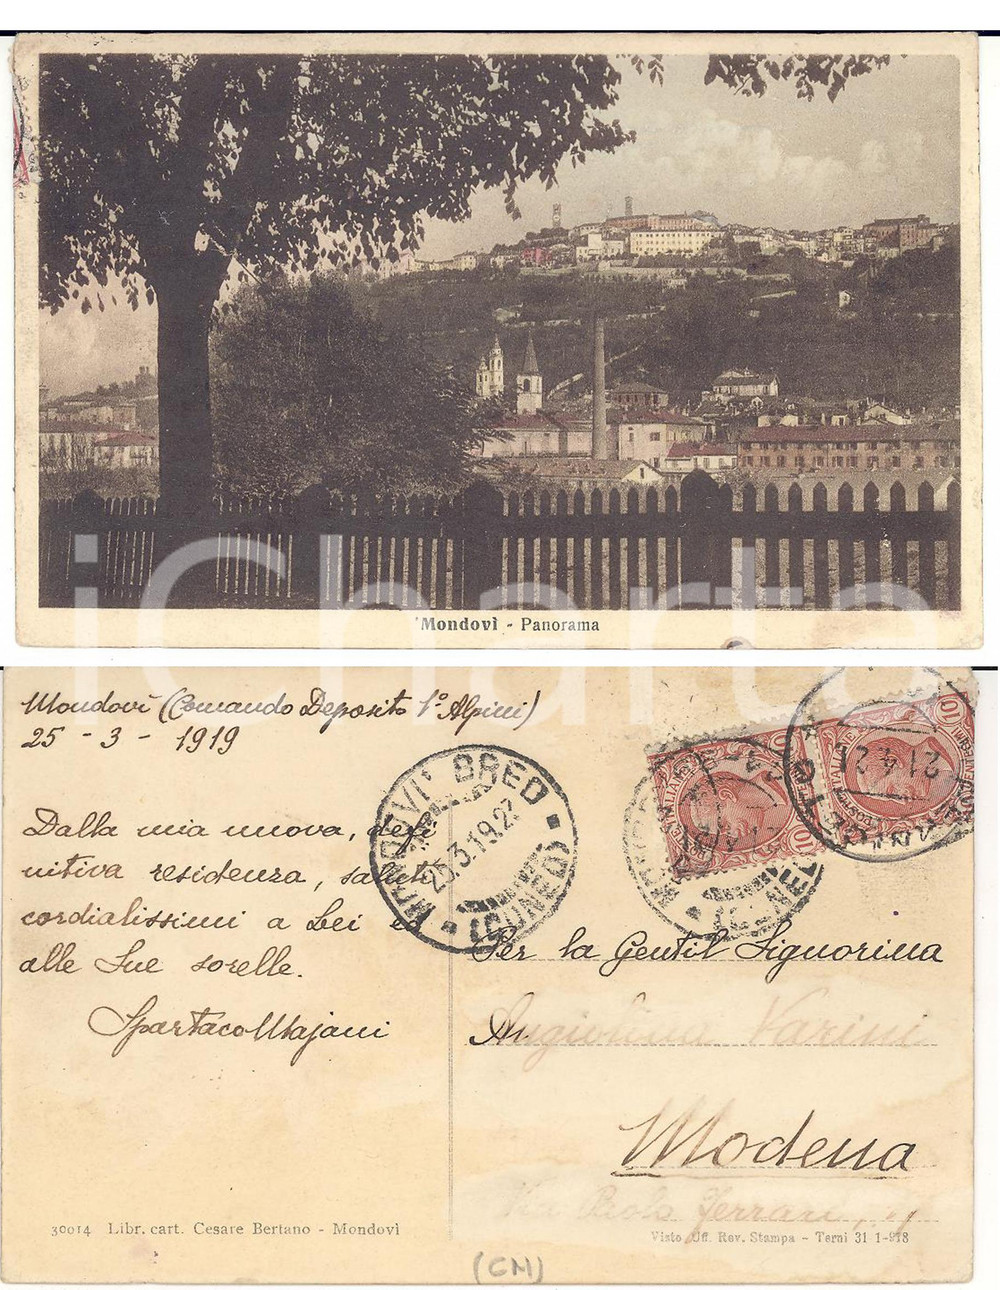 Mondovì - Panorama
iCharta
Mondovì (Comando Deposito 1° Alpini)
25 - 3 - 1919
Dalla mia nuova, defi
nitiva residenza, saluti
cordialissimi a Lei ed
alle Sue sorelle.
Spartaco Majani
MONDOVI' BREO
25.3.19.23
(CUNEO)
10
10
21.4.21
Per la Gentil Signorina
Angiolina Varini
Modena
Via Paolo Ferrari,
30014 Libr. cart. Cesare Bertano - Mondovì
Visto Uff. Rev. Stampa - Terni 31 1-918
(CM)